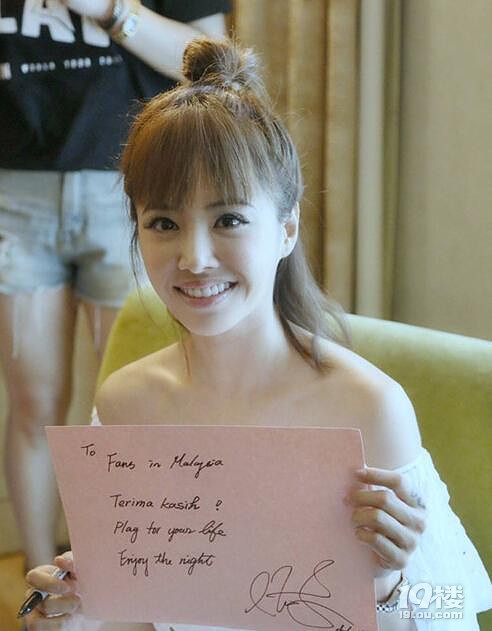 PLAY
WORLD TOUR
To Fans in Malaysia
Terima kasih ?
Play for your life
Enjoy the night
19楼
19lou.com